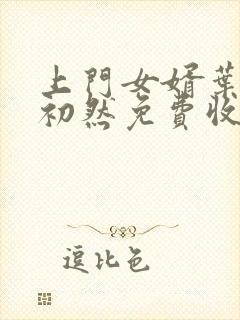 上門女婿葉
初然免費收
逗比色